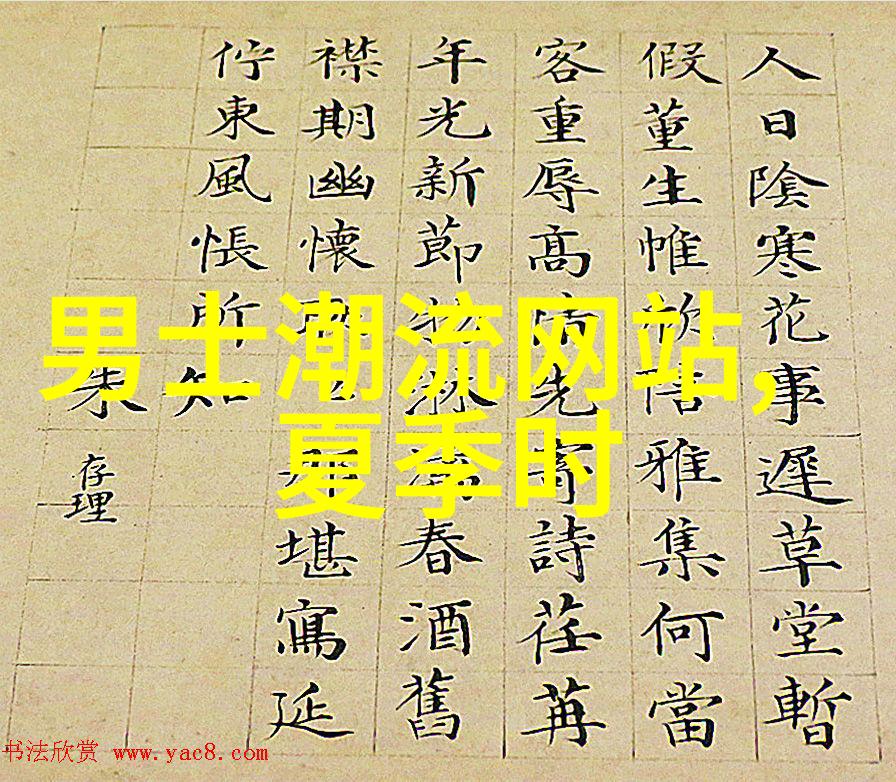 人日陰寒花事遲草堂暫
假董生帷欣陪雅集何當
客重辱高情先寄詩荏苒
年光新節物淋漓春酒舊
襟期幽懷堪寫延
佇東風悵所知
朱
存理
男士潮流网站,
夏季时
书法欣赏 www.yac8.com